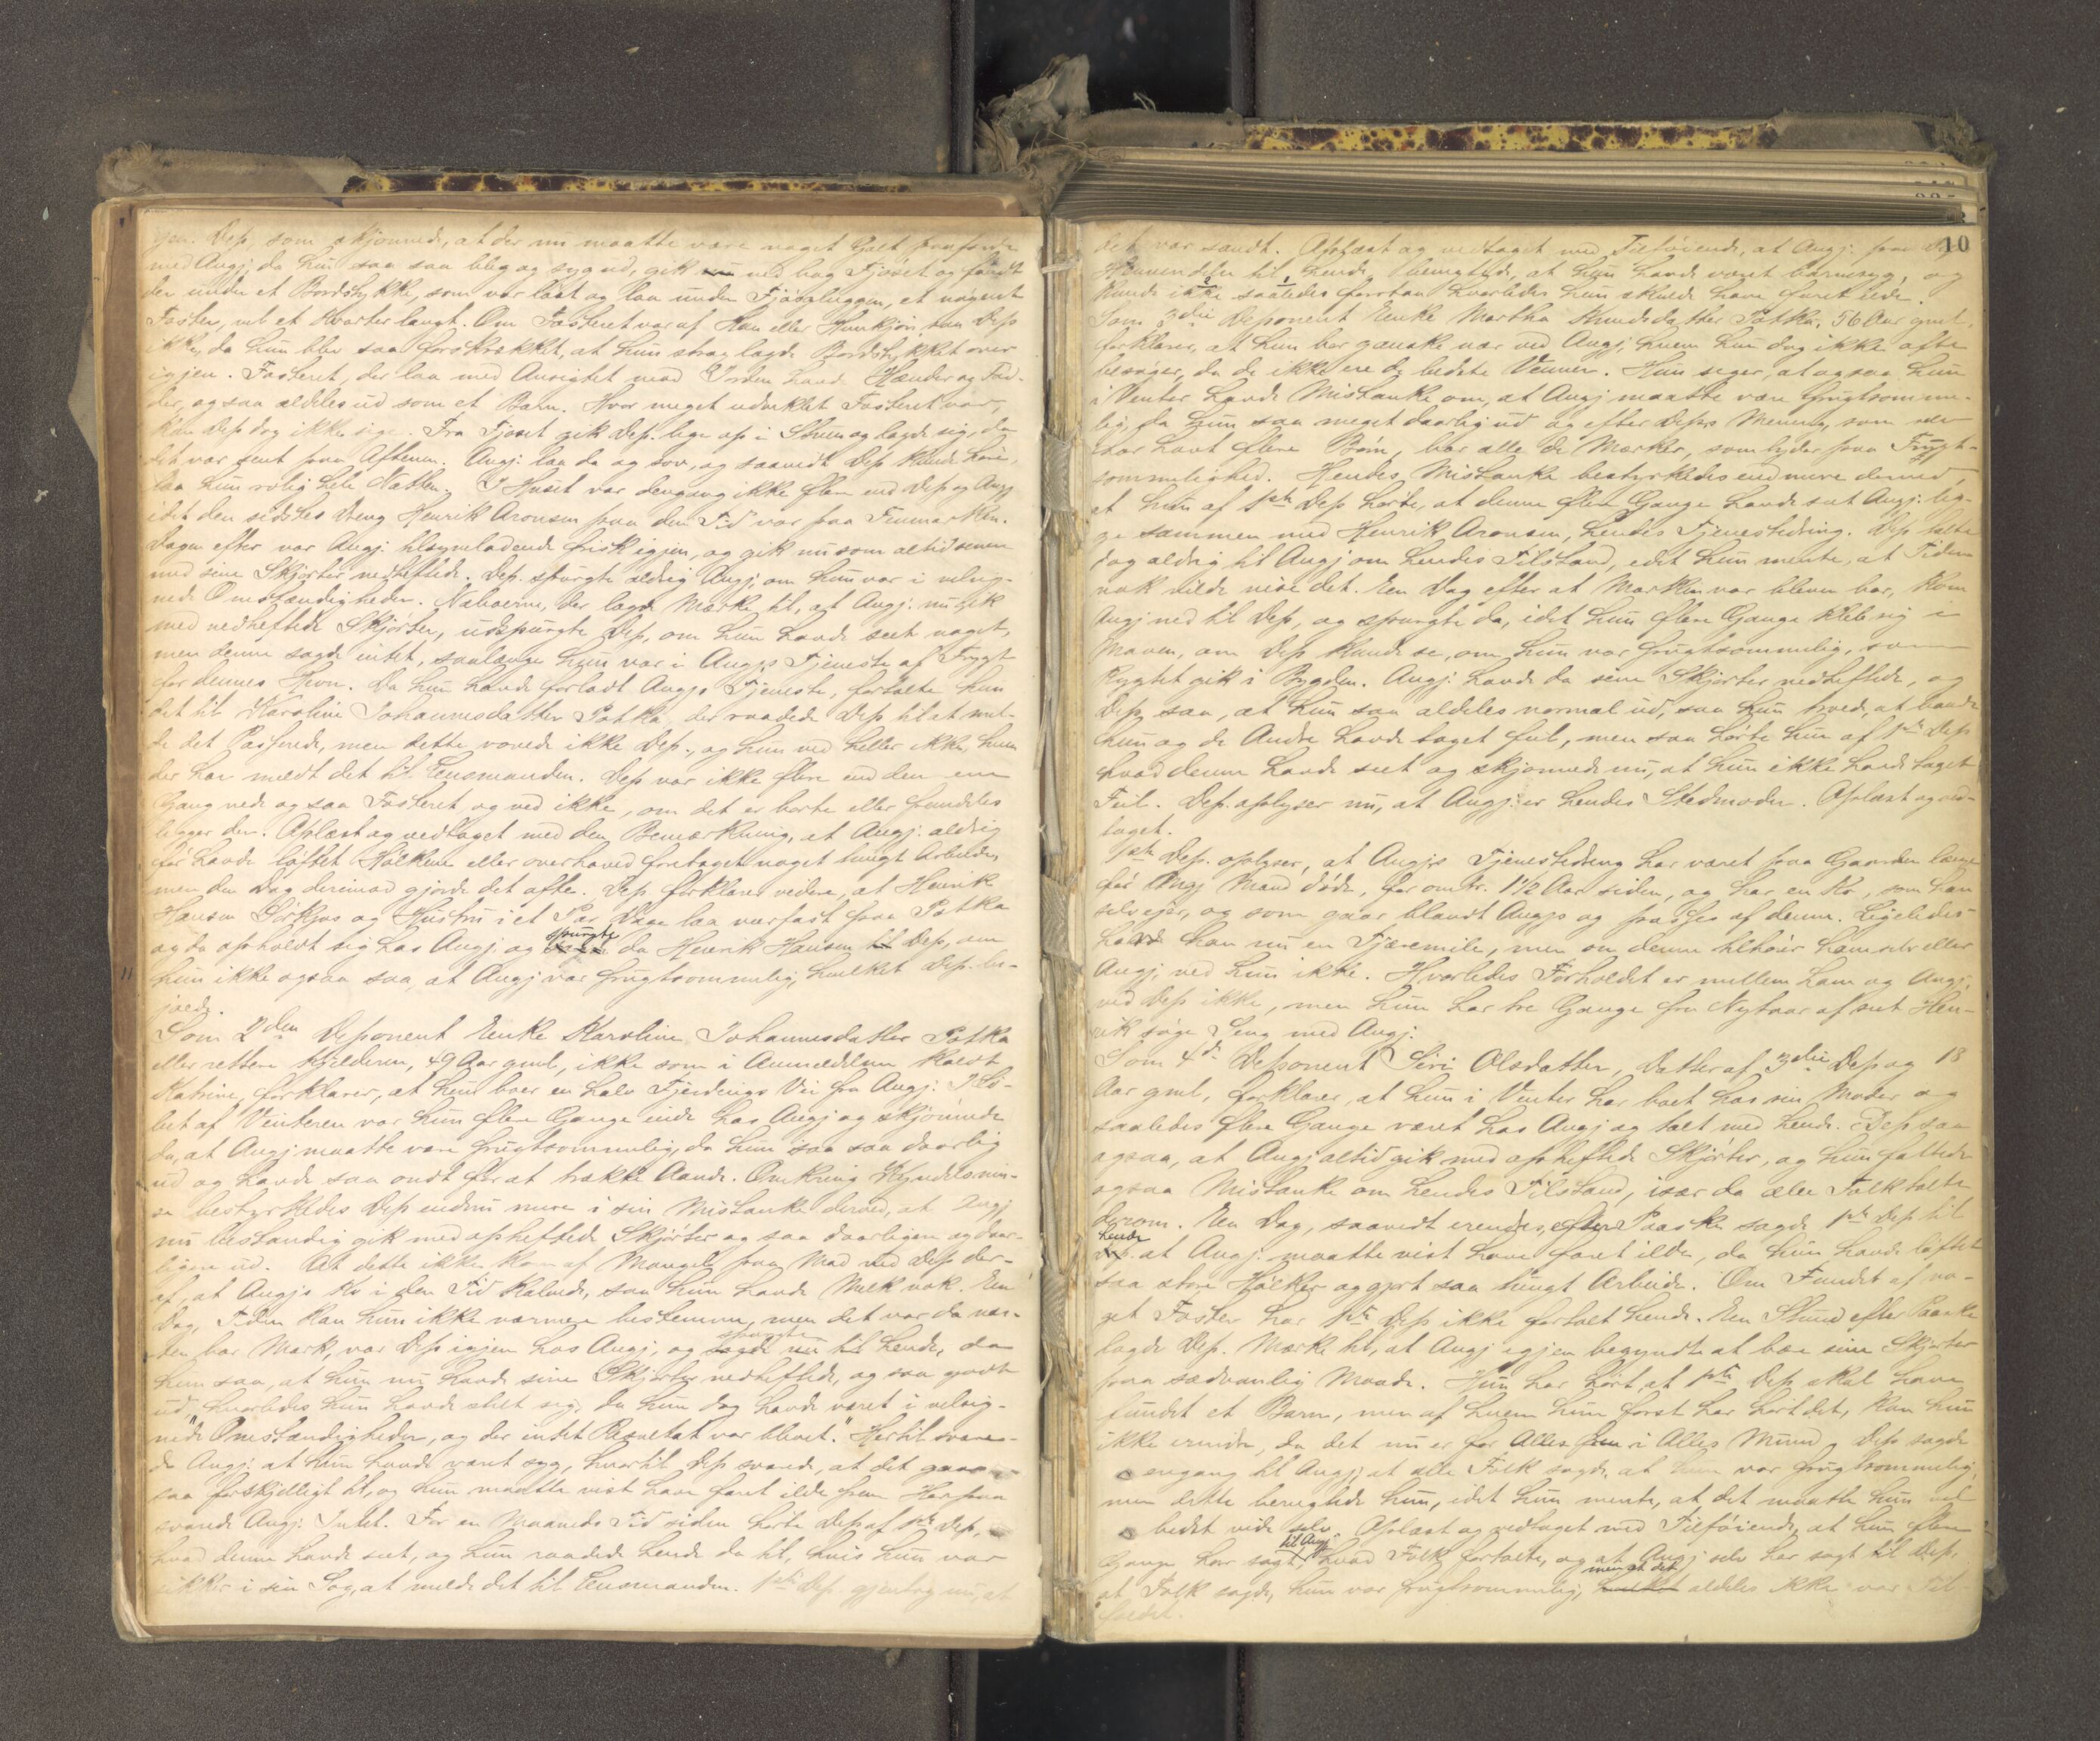 gen. Dep, som skjønnede, at der nu maatte være noget Galt paafærde
med Angj, da hun saa saa bleg og syg ud, gik ned bag Fjøset og fandt
der under et Bordstykke, som var løst og laa under Fjøsgluggen, et nøgent
Foster, vel et Kvarter langt. Om Fosteret var af Han eller Hunkjøn saa Dep
ikke, da hun blev saa forskrækket, at hun strax lagde Bordstykket over
igjen. Fosteret, der laa med Ansigtet mod Jorden havde Hænder og Fød-
der, og saa aldeles ud som et Barn. Hvor meget udviklet Fosteret var,
kan Dep dog ikke sige. Fra Fjøset gik Dep. lige op i Stuen og lagde sig, da
det var sent paa Aftenen. Angj. laa da og sov, og saavidt Dep kunde høre,
laa hun rolig hele Natten. I Huset var dengang ikke flere end Dep og Angj
idet den sidstes Dreng Henrik Aronsen paa den Tid var paa Finmarken.
Dagen efter var Angj. tilsyneladende frisk igjen, og gik nu som altid senere
med sine Skjørter nedheftede. Dep. spurgte aldrig Angj. om hun var i velsig-
nede Omstændigheder. Naboerne, der lagde Mærke til, at Angj. nu gik
med nedheftede Skjørter, udspurgte Dep, om hun havde seet noget,
men denne sagde intet, saalænge hun var i Angjs Tjeneste af Frygt
for dennes Hevn. Da hun havde forladt Angjs Tjeneste, fortalte hun
det til Karoline Johannesdatter Potka, der raadede Dep til at mel-
de det Passerede, men dette vovede ikke Dep., og hun ved heller ikke, hvem
der har meldt det til Lensmanden. Dep var ikke flere end den ene
Gang nede og saa Fosteret og ved ikke, om det er borte eller fremdeles
ligger der. Oplæst og vedtaget med den Bemærkning, at Angj. aldrig
før havde løftet Hølkene eller overhoved foretaget noget tungt Arbeide,
men den Dag derimod gjorde det ofte. Dep forklarer videre, at Henrik
Hansen og Hustru i et Par Dage laa værfast paa Potka
og da opholdt sig hos Angj. og spurgte da Henrik Hansen Dep, om
hun ikke ogsaa saa, at Angj var frugtsommelig, hvilket Dep. be-
jaede.
Som 2den Deponent Enke Karoline Johannesdatter Potka
eller rettere Kjelderen, 49 Aar gml, ikke som i Anmeldelsen kaldt
Katrine, forklarer, at hun boer en halv Fjerdings Vei fra Angj. I Lø-
bet af Vinteren var hun flere Gange inde hos Angj og skjønnede
da, at Angj maatte være frugtsommelig, da hun saa saa daarlig
ud og havde saa ondt for at trække Aande. Omkring Kyndelsmes-
se bestyrkedes Dep endnu mere i sin Mistanke derved, at Angj
nu bestandig gik med opheftede Skjørter og saa daarligere og daar-
ligere ud. At dette ikke kom af Mangel paa Mad ved Dep der-
af, at Angjs Ko i den Tid kalvede, saa hun havde Melk nok. En
Dag, Tiden kan hun ikke nærmere bestemme, men det var da næs-
ten bar Mark, var Dep igjen hos Angj, og spurgte hende, da
hun saa, at hun nu havde sine Skjørter nedheftede, og saa godt
ud, hvorledes hun havde stelt sig, da hun dog havde været i velsig-
nede Omstændigheder, og der intet Resultat var blevet." Hertil svare-
de Angj. at hun havde været syg, hvortil Dep svarede, at det gaar
saa forskjelligt til, og hun maatte vist have faret ilde frem Herpaa
svarede Angj. Intet. For en Maaneds Tid siden hørte Dep af 1ste Dep,
hvad denne havde seet, og hun raadede hende da til, hvis hun var
sikker i sin Sag, at melde det til Lensmanden. 1ste Dep. gjentog nu, at
10
det var sandt. Oplæst og vedtaget med Tilføiende, at Angj. paa
Henvendelse til hende benegtede, at hun havde været barnesyg, og
kunde ikke saaledes forstaa hvorledes hun skulde have faret ilde.
Som 3die Deponent Enke Martha Knudsdatter Potka, 56 Aar gml,
forklarer, at hun bor ganske nær ved Angj, hvem hun dog ikke ofte
besøger, da de ikke ere de bedste Venner. Hun siger, at ogsaa hun
i Vinter havde Mistanke om, at Angj maatte være frugtsomme-
lig, da hun saa meget daarlig ud og efter Deps Mening, som selv
har havt flere Børn, bar alle de Mærker, som tyder paa Frugt-
sommelighed. Hendes Mistanke bestyrkedes endmere derved,
at hun af 1ste Dep hørte, at denne flere Gange havde set Angj. lig-
ge sammen med Henrik Aronsen, hendes Tjenestedreng. Dep talte
dog aldrig til Angj om hendes Tilstand, idet hun mente, at Tiden
nok vilde vise det. En Dag efter at Marken var bleven bar, kom
Angj ned til Dep, og spurgte da, idet hun flere Gange kleb sig i
Maven, om Dep kunde se, om hun var frugtsommelig, som
Rygtet gik i Bygden. Angj. havde da sine Skjørter nedheftede, og
Dep saa, at hun saa aldeles normal ud, saa hun troede, at baade
hun og de Andre havde taget feil, men saa hørte hun af 1ste Dep
hvad denne havde seet og skjønnede nu, at hun ikke havde taget
Feil. Dep. oplyser nu, at Angj. er hendes Stedmoder. Oplæst og ved-
taget.
1ste Dep. oplyser, at Angjs Tjenestedreng har været paa Gaarden længe
før Angj Mand døde, for omtr. 1 1/2 Aar siden, og har en Ko, som han
selv ejer, og som gaar blandt Angjs og passes af denne. Ligeledes
havde han nu en Tjæremile, men om denne tilhører ham selv eller
Angj, ved hun ikke. Hvorledes Forholdet er mellem ham og Angj,
ved Dep ikke, men hun har tre Gange fra Nytaar af seet Hen-
rik søge Seng med Angj.
Som 4de Deponent Siri Olsdatter, Datter af 3die Dep og 18
Aar gml, forklarer, at hun i Vinter har boet hos sin Moder og
saaledes flere Gange været hos Angj og talt med hende. Dep saa
ogsaa, at Angj altid gik med opheftede Skjørter, og hun fattede
ogsaa Mistanke om hendes Tilstand, især da alle Folk talte
derom. En Dag, saavidt erindres, efter Paaske sagde 1ste Dep til
hende at Angj. maatte vist have faret ilde, da hun havde løftet
saa store Hølker og gjort saa tungt Arbeide. Om Fundet af no-
get Foster har 1ste Dep ikke fortalt hende. En Stund efter Paaske
lagde Dep. Mærke til, at Angj igjen begyndte at bære sine Skjørter
paa sædvanlig Maade. Hun har hørt, at 1ste Dep skal have
fundet et Barn, men af hvem hun først har hørt det, kan hun
ikke erindre, da det nu er for Alles i Alles Mund. Dep sagde
engang til Angj, at alle Folk sagde, at hun var frugtsommelig,
men dette benegtede hun, idet hun mente, at det maatte hun vel
bedst vide selv. Oplæst og vedtaget med Tilføiende, at hun flere
Gange har sagt til Angj hvad Folk fortalte, og at Angj selv har sagt til Dep,
at Folk sagde, hun var frugtsommelig, men at det aldeles ikke var Til
fældet.